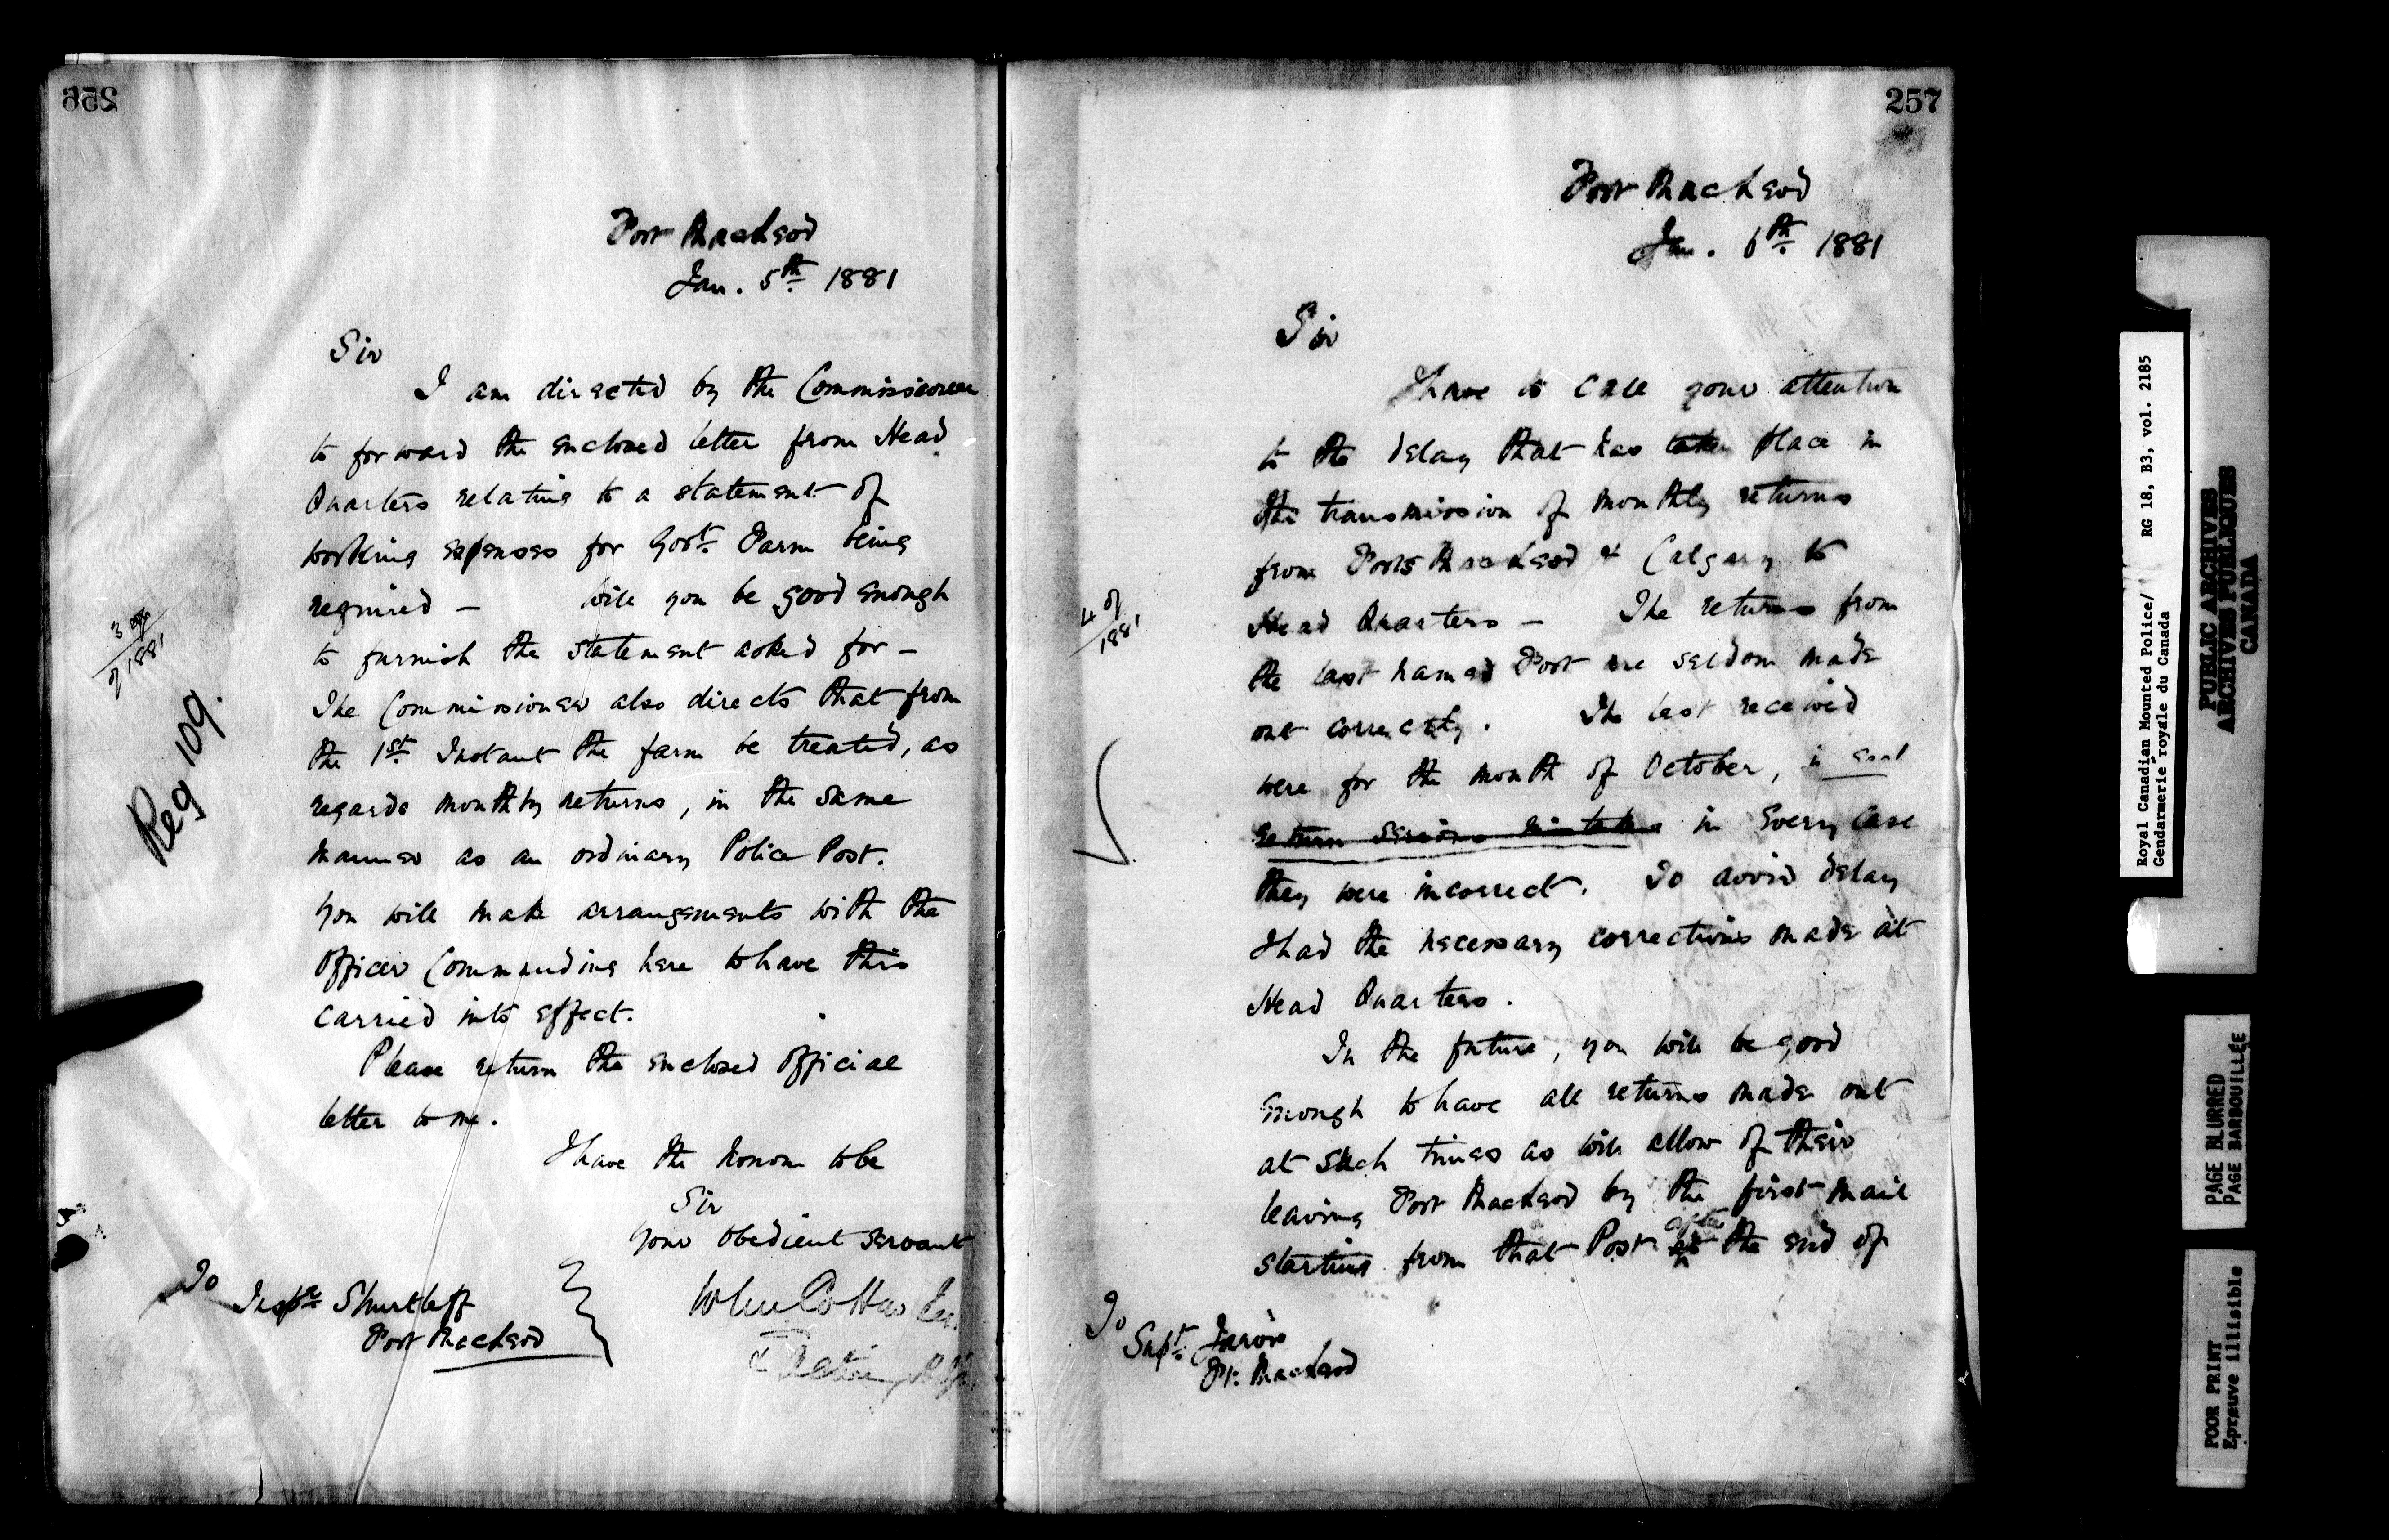 256
Fort MacLeod
Jan. 5th 1881
Sir
I am directed by the Commissioner
to forward the enclosed letter from Head
Quarters relating to a statement of
working expenses for Govt. Farm being
required — Will you be good enough
to furnish the statement asked for —
The Commissioner also directs that from
the 1st. Instant the farm be treated, as
regards monthly returns, in the same
manner as an ordinary Police Post.
You will make arrangements with the
Officer Commanding here to have this
carried into effect.
Please return the enclosed official
letter to me.
I have the honour to be
Sir
Your obedient servant
John Cotton
To
Inspr. Shurtleff
Fort MacLeod
3
of 1881
Reg 109.
257
Fort MacLeod
Jan. 6th 1881
Sir
I have to call your attention
to the delay that has taken place in
the transmission of monthly returns
from Forts MacLeod & Calgary to
Head Quarters — The returns from
the last named Fort are seldom made
out correctly. The last received
were for the month of October,
return serious mistakes in every case
they were incorrect. To avoid delay
I had the necessary corrections made at
Head Quarters.
In the future, you will be good
enough to have all returns made out
at such times as will allow of their
leaving Fort MacLeod by the first mail
starting from that Post after the end of
To
Supt. Jarvis
Ft. MacLeod
4 of
1881
Royal Canadian Mounted Police/ RG 18, B3, vol. 2185
Gendarmerie royale du Canada
PUBLIC ARCHIVES
ARCHIVES PUBLIQUES
CANADA
PAGE BLURRED
PAGE BARBOUILLÉE
POOR PRINT
Epreuve illisible